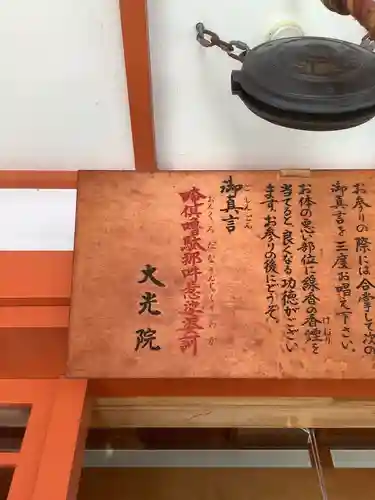 お参りの際には合掌して次の
御真言を三度お唱え下さい。
お体の悪い部位に線香の香煙を
けむり
当てると良くなる功徳がござい
ます。お参りの後にどうぞ。
御真言
ごしんごん
唵倶嚕駄那吽惹沙訶
おんくろだなうんじゃくそわか
大光院